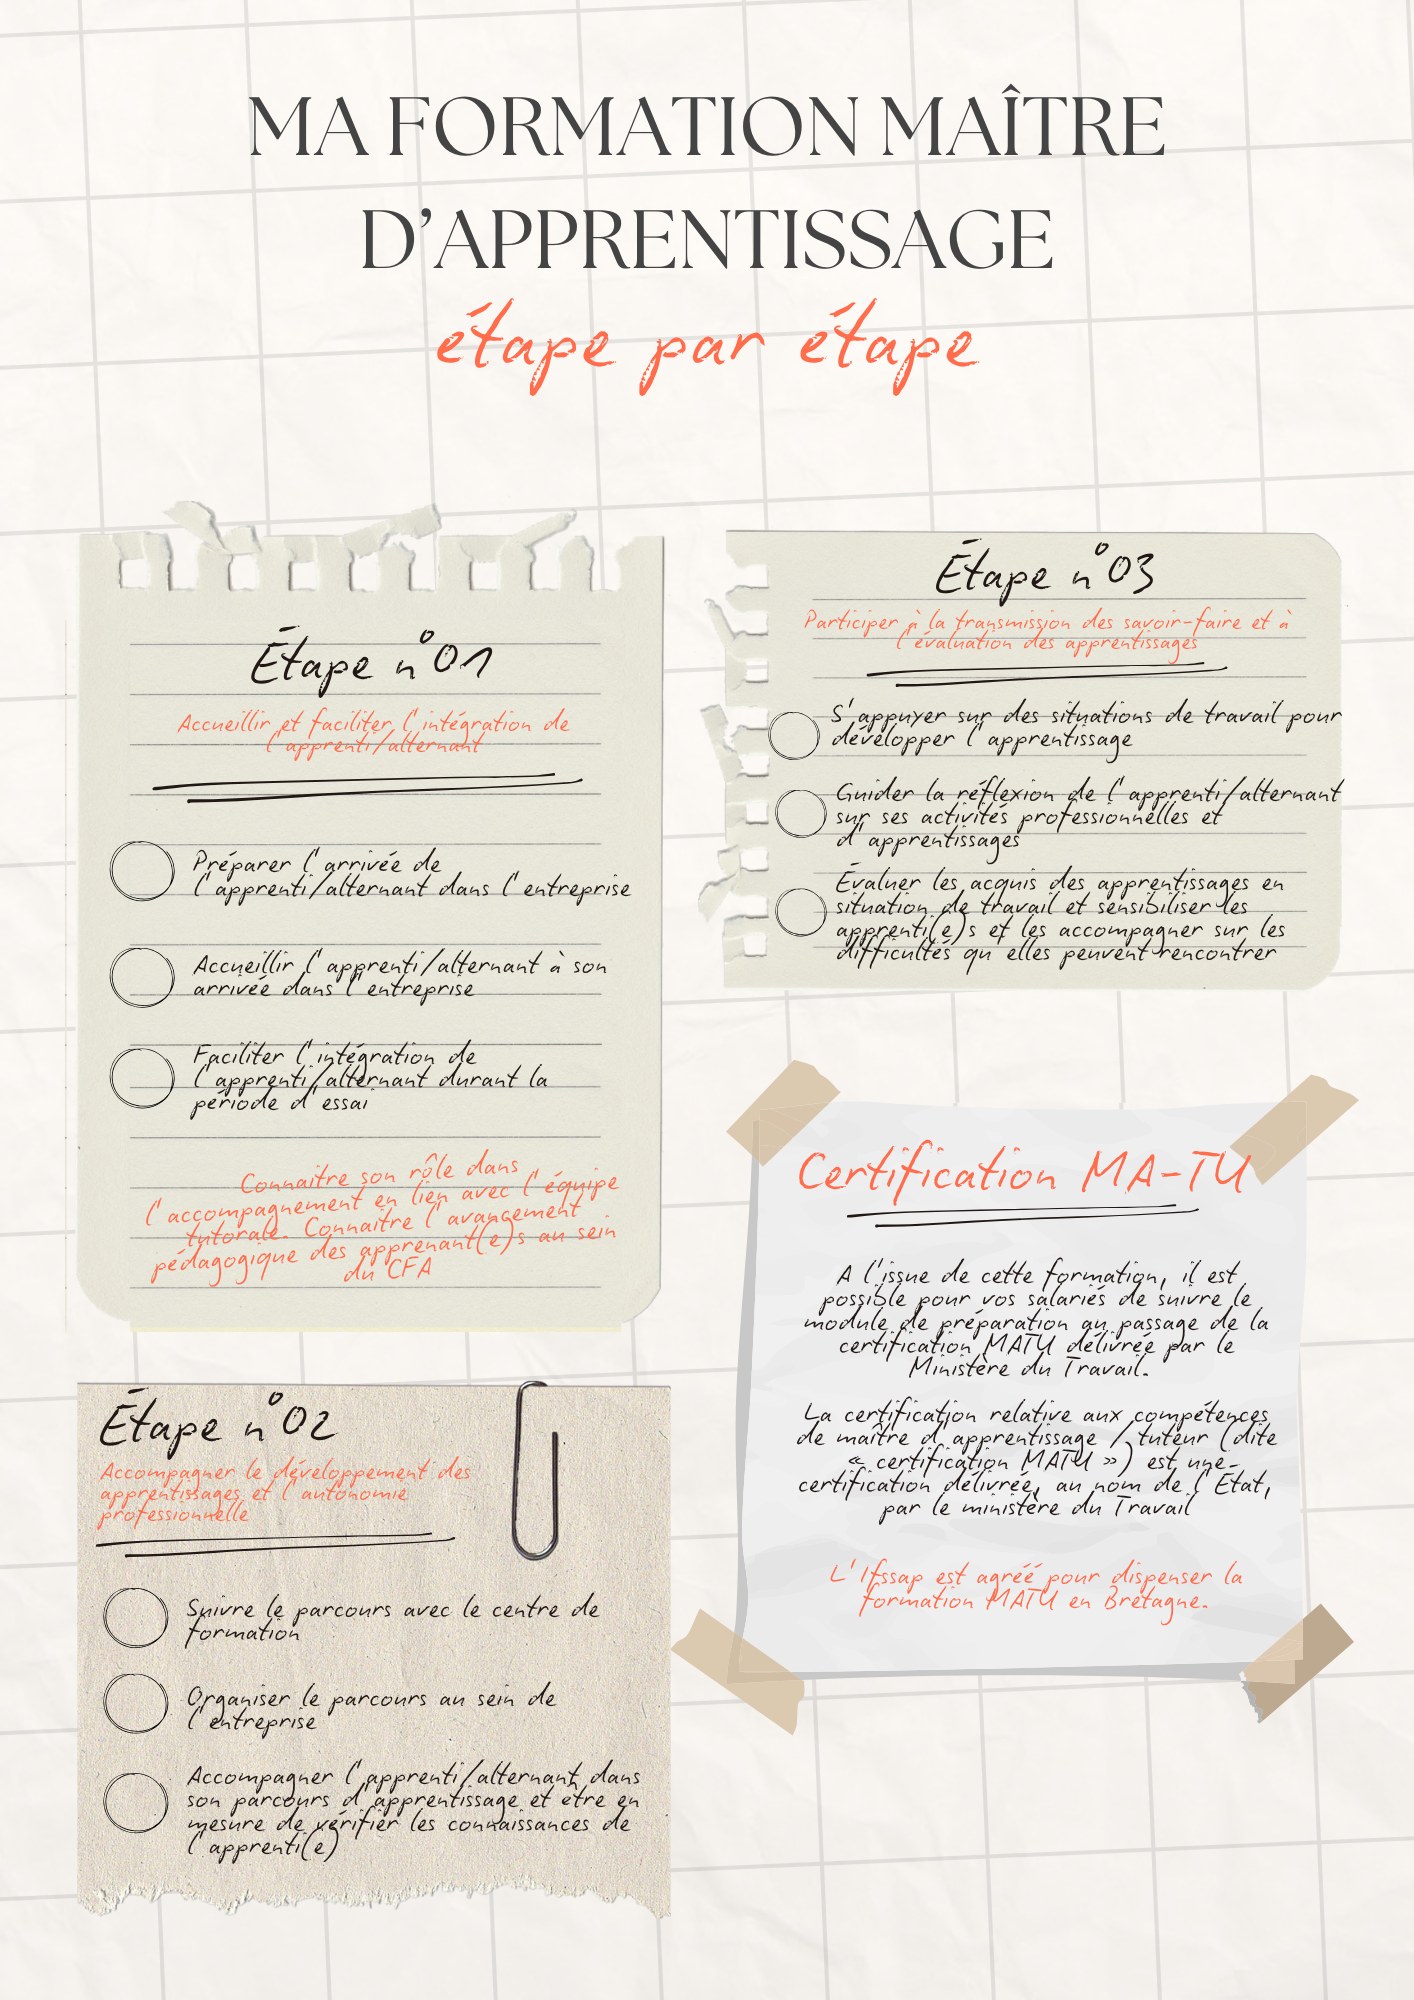 MA FORMATION MAÎTRE
D'APPRENTISSAGE
étape par étape
Étape n°01
Accueillir et faciliter l'intégration de
l'apprenti/alternant
Préparer l'arrivée de
l'apprenti/alternant dans l'entreprise
Accueillir l'apprenti/alternant à son
arrivée dans l'entreprise
Faciliter l'intégration de
l'apprenti/alternant durant la
période d'essai
Connaitre son rôle dans
l'accompagnement en lien avec l'équipe
tutorale. Connaitre l'avancement
pédagogique des apprenant(e)s au sein
du CFA
Étape n°02
Accompagner le développement des
apprentissages et l'autonomie
professionnelle
Suivre le parcours avec le centre de
formation
Organiser le parcours au sein de
l'entreprise
Accompagner l'apprenti/alternant dans
son parcours d'apprentissage et être en
mesure de vérifier les connaissances de
l'apprenti(e)
Étape n°03
Participer à la transmission des savoir-faire et à
l'évaluation des apprentissages
S'appuyer sur des situations de travail pour
développer l'apprentissage
Guider la réflexion de l'apprenti/alternant
sur ses activités professionnelles et
d'apprentissages
Évaluer les acquis des apprentissages en
situation de travail et sensibiliser les
apprenti(e)s et les accompagner sur les
difficultés qu'elles peuvent rencontrer
Certification MA-TU
A l'issue de cette formation, il est
possible pour vos salariés de suivre le
module de préparation au passage de la
certification MATU délivrée par le
Ministère du Travail.
La certification relative aux compétences
de maître d'apprentissage / tuteur (dite
« certification MATU ») est une
certification délivrée, au nom de l'État,
par le ministère du Travail
L'Ifssap est agréé pour dispenser la
formation MATU en Bretagne.